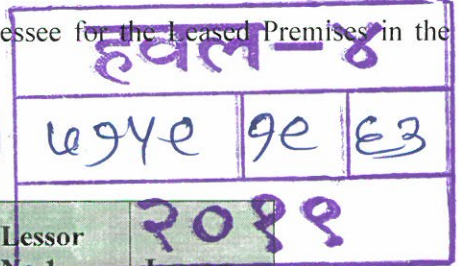 essee for the Leased Premises in the
हवल-४
७१५९ १९ ६३
Lessor २०१९